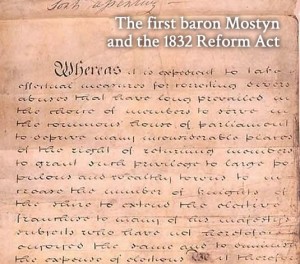 The first baron Mostyn
and the 1832 Reform Act
Whereas it is expedient to take
effectual measures for correcting divers
abuses that have long prevailed in
the choice of members to serve in
the commons house of parliament
to deprive many inconsiderable places
of the right of returning members
to grant such privilege to large po
pulous and wealthy towns to in
crease the number of knights of
the shire to extend the elective
franchise to many of his majesty's
subjects who have not heretofore
enjoyed the same and to diminish
the expense of elections Be it therefore